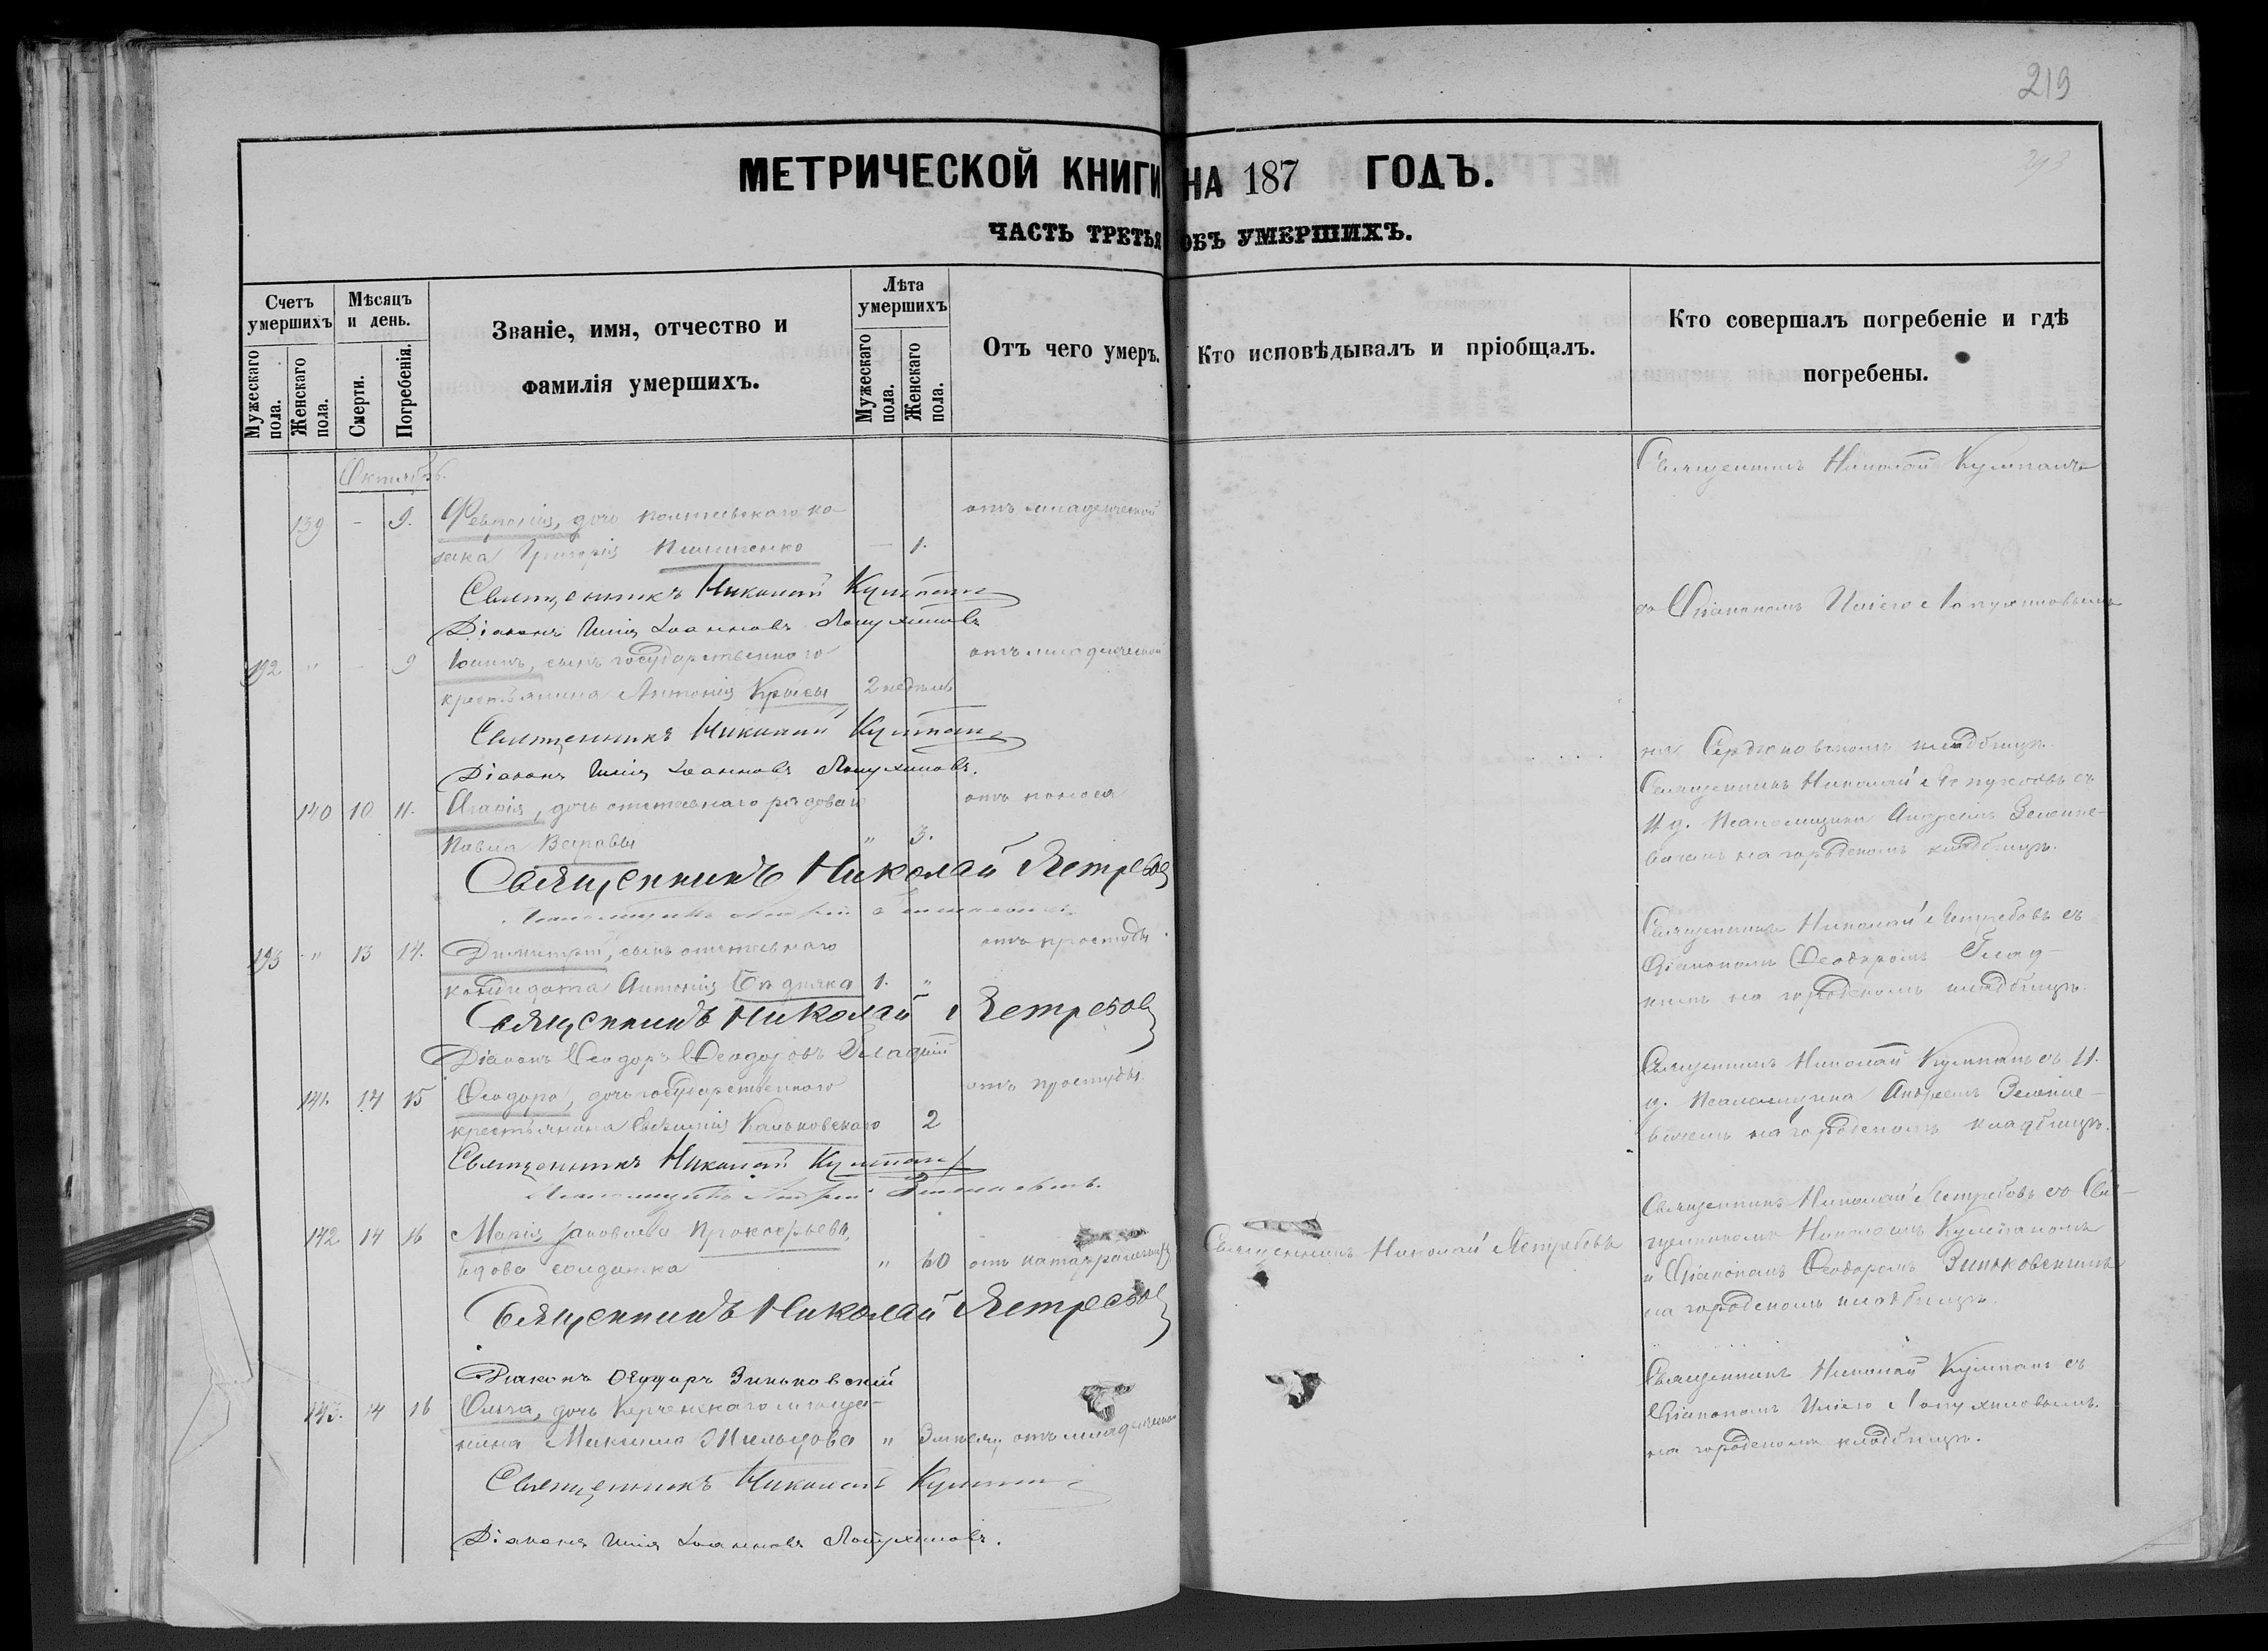 219
293
МЕТРИЧЕСКОЙ КНИГИ НА 187 ГОДЪ.
ЧАСТЬ ТРЕТЬЯ ОБЪ УМЕРШИХЪ.
Счетъ умершихъ
Мѣсяцъ и день.
Званіе, имя, отчество и фамилія умершихъ.
Лѣта умершихъ
Отъ чего умеръ.
Кто исповѣдывалъ и пріобщалъ.
Кто совершалъ погребеніе и гдѣ погребены.
Мужескаго пола.
Женскаго пола.
Смерти.
Погребенія.
Мужескаго пола.
Женскаго пола.
Октябрь.
Священникъ Николай Кулпанъ
139 - 9. Февронія, дочь полтавскаго ко- отъ младенческой
зака Григорія — 1.
Священникъ Николай Кулпанъ
съ Діакономъ Иліею Лопухиновымъ
Діаконъ Илія Іоанновъ Лопухиновъ
192 " - 9 Іоаннъ, сынъ государственнаго отъ младенческой
крестьянина Антонія Крысы 2 недѣль
Священникъ Николай Кулпанъ
на Сердюковскомъ кладбищѣ.
Діаконъ Илія Іоанновъ Лопухиновъ.
140 10 11. Агафія, дочь отставнаго рядоваго отъ поноса
Павла " 3.
Священникъ Николай Ястребовъ съ
И. д. Псаломщика Андреемъ
на городскомъ кладбищѣ.
Священникъ Николай Ястребовъ
Псаломщикъ Андрей
193 " 13 14. Димитрій, сынъ отставнаго отъ простуды.
кандидата Антонія Бодняка 1. "
Священникъ Николай Ястребовъ съ
Діакономъ Ѳеодоромъ Глад-
кимъ на городскомъ кладбищѣ.
Священникъ Николай Ястребовъ
Діаконъ Ѳеодоръ Ѳеодоровъ Гладкій
141. 14 15 Ѳеодора, дочь государственнаго отъ простуды.
крестьянина Евѳимія Кальковскаго 2
Священникъ Николай Кулпанъ съ И.
д. Псаломщика Андреемъ
на городскомъ кладбищѣ.
Священникъ Николай Кулпанъ
Псаломщикъ Андрей
142 14 16 Марія Яковлева Прокофьева,
вдова солдатка " 60 отъ катарральной
Священникъ Николай Ястребовъ
Священникъ Николай Ястребовъ со Свя-
щенникомъ Николаемъ Кулпаномъ
и Діакономъ Ѳеодоромъ Зиньковскимъ
на городскомъ кладбищѣ.
Священникъ Николай Ястребовъ
Діаконъ Ѳеодоръ Зиньковскій
143. 14 16 Ольга, дочь Керченскаго мѣща-
нина Михаила " 3 мѣсяц. отъ младенческой
Священникъ Николай Кулпанъ съ
Діакономъ Иліею Лопухиновымъ.
на городскомъ кладбищѣ.
Священникъ Николай Кулпанъ
Діаконъ Илія Іоанновъ Лопухиновъ.